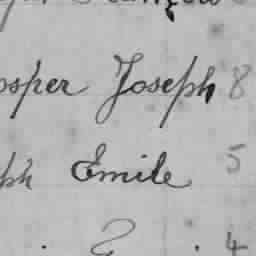 osper Joseph 8
ph Emile 5
. 2 . 4